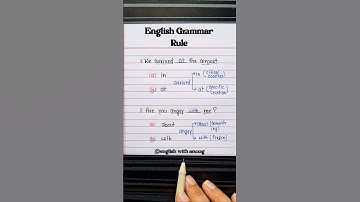 English Grammar
Rule
1. We arrived at the airport.
(a) in
(b) at
arrived
in (cities/countries)
at (specific location)
2. Are you angry with me?
(a) about
(b) with
angry
about (something)
with (People)
@english with anurag